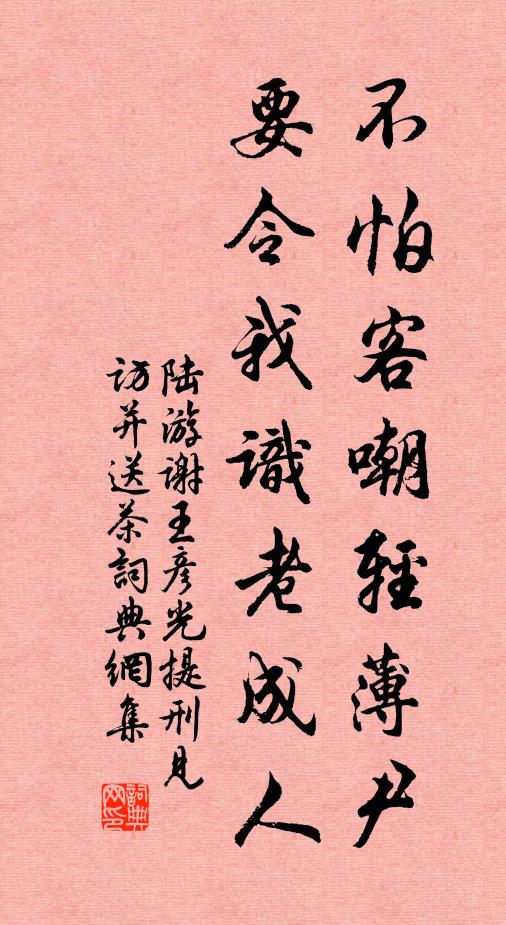 不怕客嘲輕薄尹
要令我識老成人
陆游谢王彦光提刑見
访并送茶詞典網集
詞典
网印